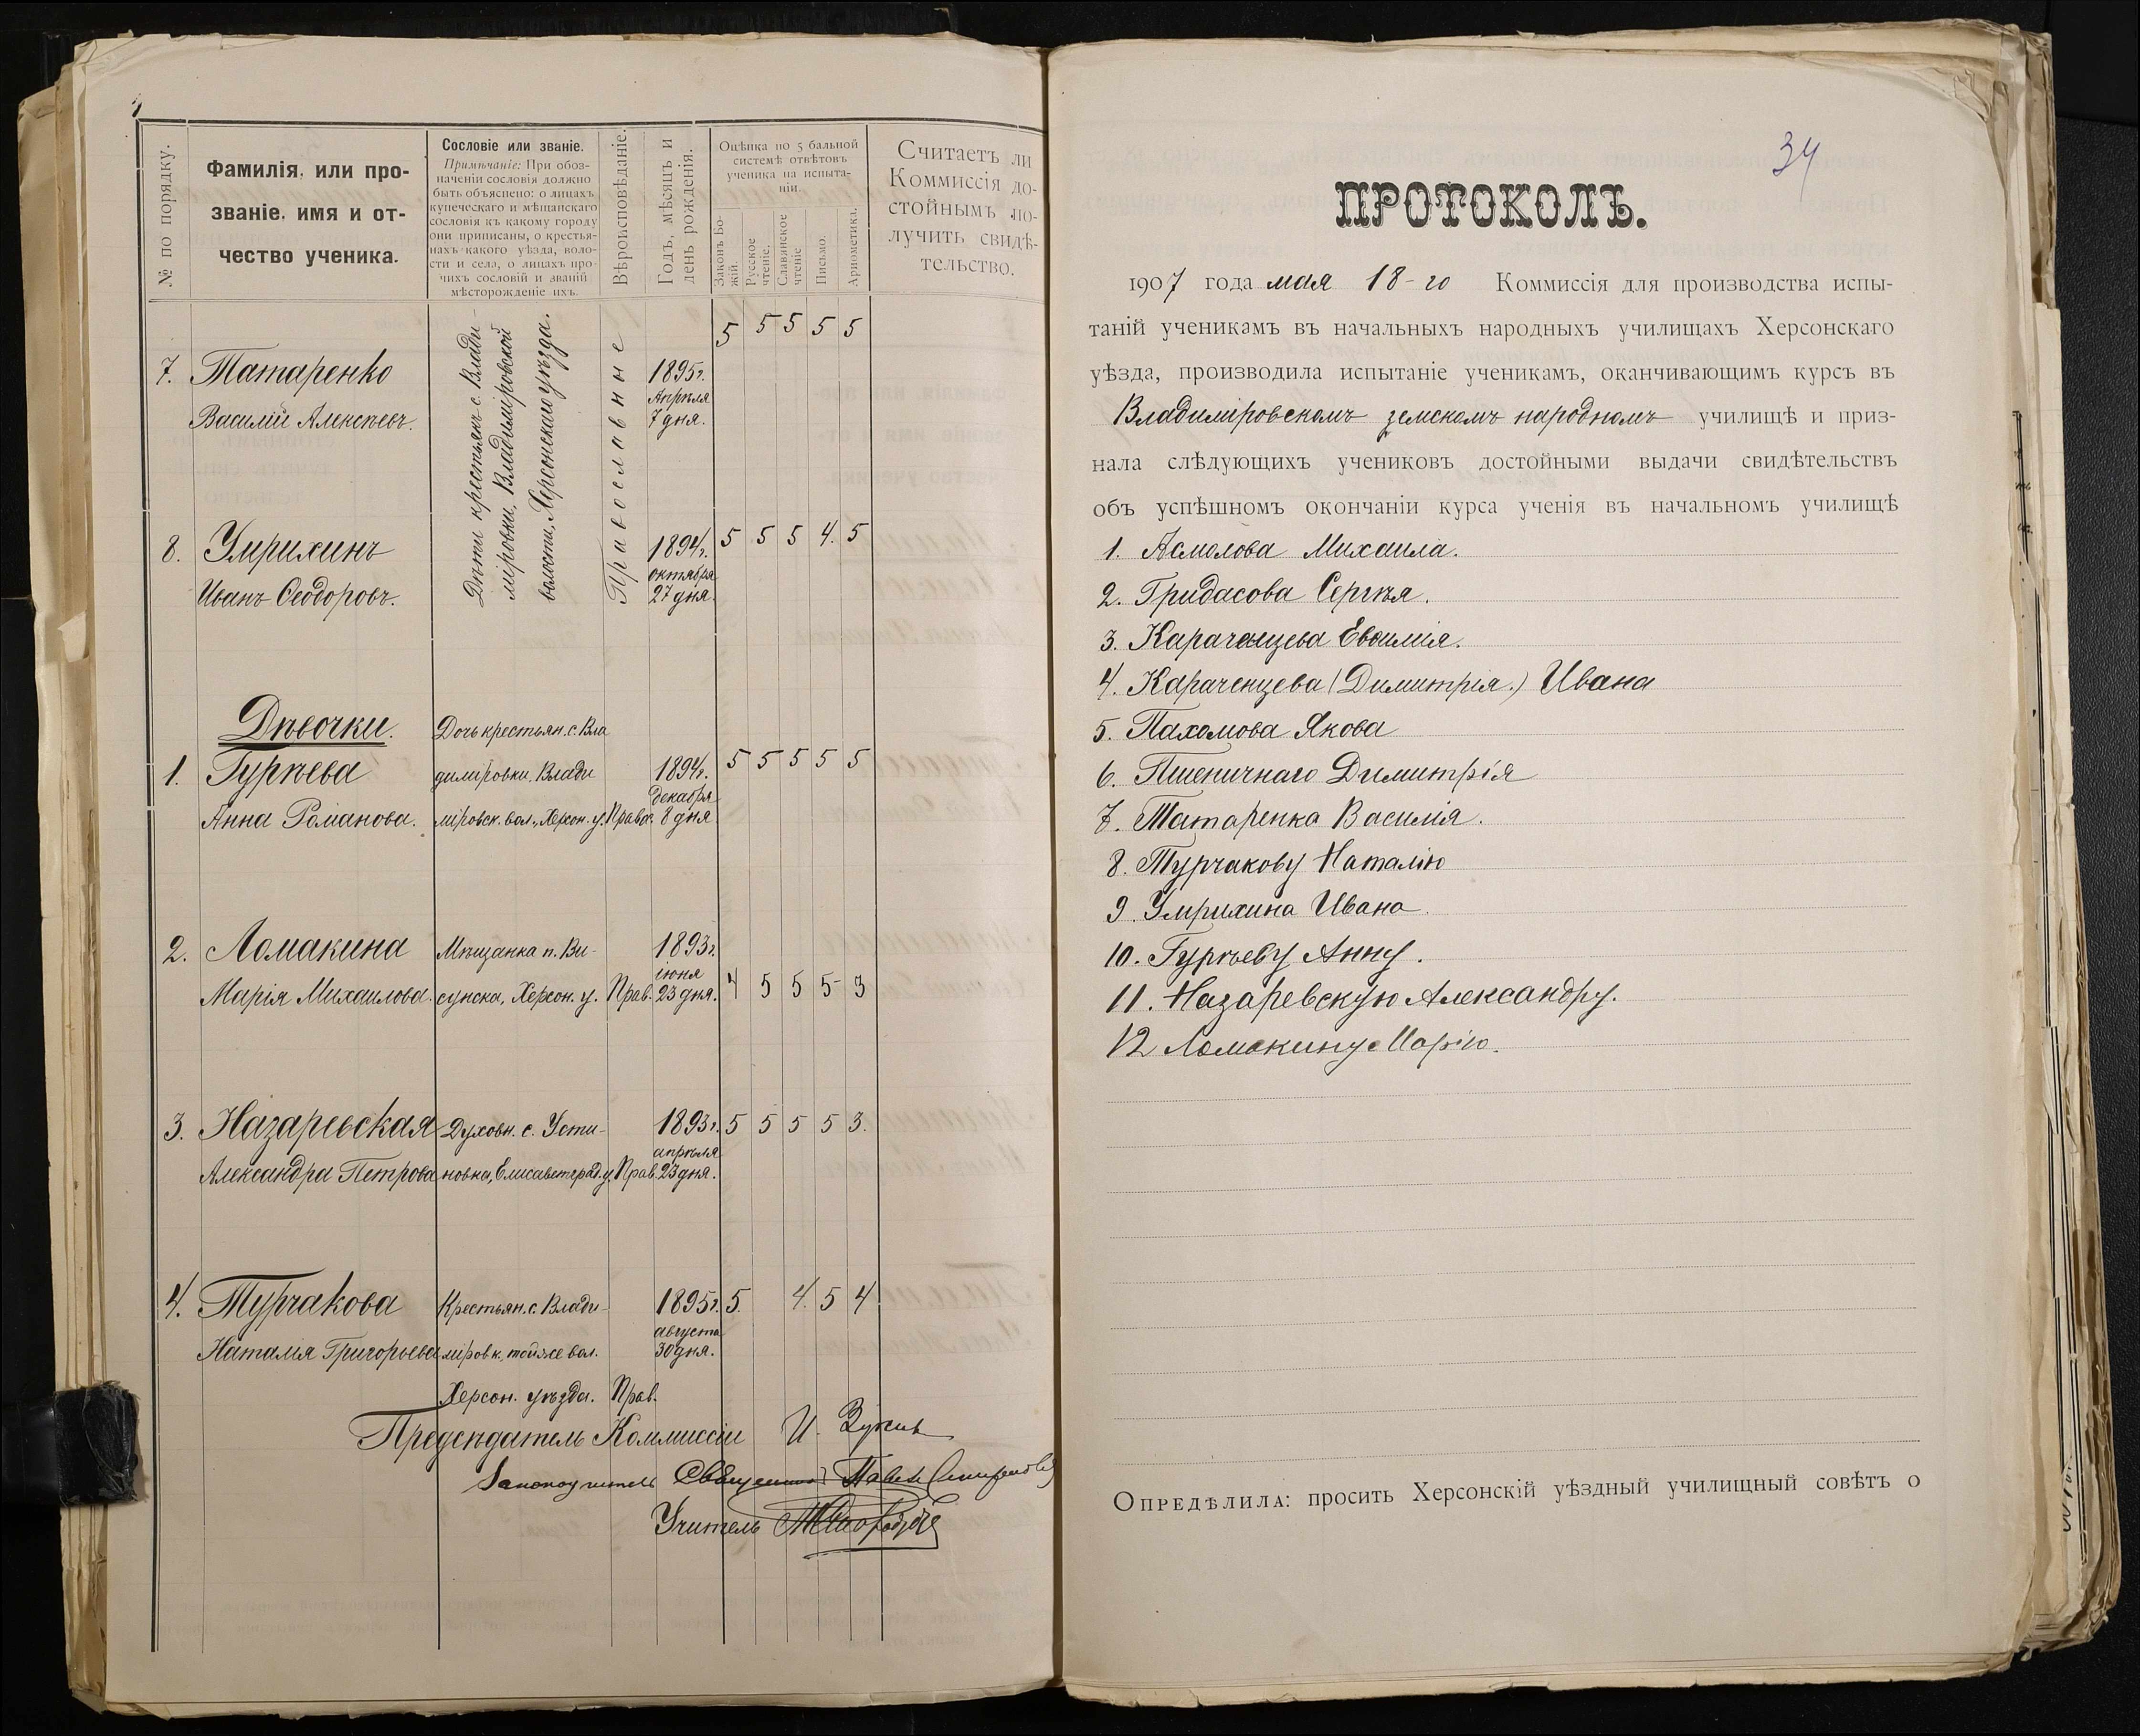 № по порядку.
Фамилія, или про-
званіе, имя и от-
чество ученика.
Сословіе или званіе.
Примѣчаніе: При обоз-
наченіи сословія должно
быть объяснено: о лицахъ
купеческаго и мѣщанскаго
сословія къ какому городу
они приписаны, о крестья-
нахъ какого уѣзда, воло-
сти и села, о лицахъ про-
чихъ сословій и званій
мѣсторожденіе ихъ.
Вѣроисповѣданіе.
Годъ, мѣсяцъ и
день рожденія.
Оцѣнка по 5 бальной
системѣ отвѣтовъ
ученика на испыта-
ніи.
Законъ Бо-
жій.
Русское
чтеніе.
Славянское
чтеніе
Письмо.
Ариөметика.
Считаетъ ли
Коммиссія до-
стойнымъ по-
лучить свидѣ-
тельство.
Дѣти крестьянъ с. Влади-
міровки, Владиміровской
волости, Херсонскаго уѣзда.
Православные
5 5 5 5 5
7. Татаренко 1895 г.
Апрѣля
Василій Алексѣевъ. 7 дня.
8. Умрихинъ 1894 г. 5 5 5 4. 5
октября
Иванъ Ѳеодоровъ. 27 дня.
Дѣвочки. Дочь крестьян. с. Вла
1. Гурѣева димировки, Влади 1894 г. 5 5 5 5 5
декабря
Анна Романова. міровск. вол., Херсон. у. Правос. 8 дня
2. Ломакина Мѣщанка п. Ви- 1893 г.
іюня
Марія Михаилова. сунска, Херсон. у. Прав. 23 дня. 4 5 5 5- 3
3. Назаревская Духовн. с. Усти- 1893 г. 5 5 5 5 3.
апрѣля
Александра Петрова новка, Елисаветград. у. Прав. 23 дня.
4. Турчакова Крестьян. с. Влади- 1895 г. 5. 4. 5 4
августа
Наталія Григорьева міровк. тойже вол. 30 дня.
Херсон. уѣзда. Прав.
Предсѣдатель Коммиссіи И.
Законоучитель Священникъ Павелъ
Учитель
34
ПРОТОКОЛЪ.
1907 года мая 18-го Коммиссія для производства испы-
таній ученикамъ въ начальныхъ народныхъ училищахъ Херсонскаго
уѣзда, производила испытаніе ученикамъ, оканчивающимъ курсъ въ
Владиміровскомъ земскомъ народномъ училищѣ и приз-
нала слѣдующихъ учениковъ достойными выдачи свидѣтельствъ
объ успѣшномъ окончаніи курса ученія въ начальномъ училищѣ
1. Асмолова Михаила.
2. Гридасова Сергѣя.
3. Караченцева Евѳимія.
4. Караченцева (Димитрія.) Ивана
5. Пахомова Якова
6. Пшеничнаго Димитрія
7. Татаренка Василія.
8. Турчакову Наталію
9. Умрихина Ивана.
10. Гурѣеву Анну.
11. Назаревскую Александру.
12 Ломакину Марію.
Опредѣлила: просить Херсонскій уѣздный училищный совѣтъ о